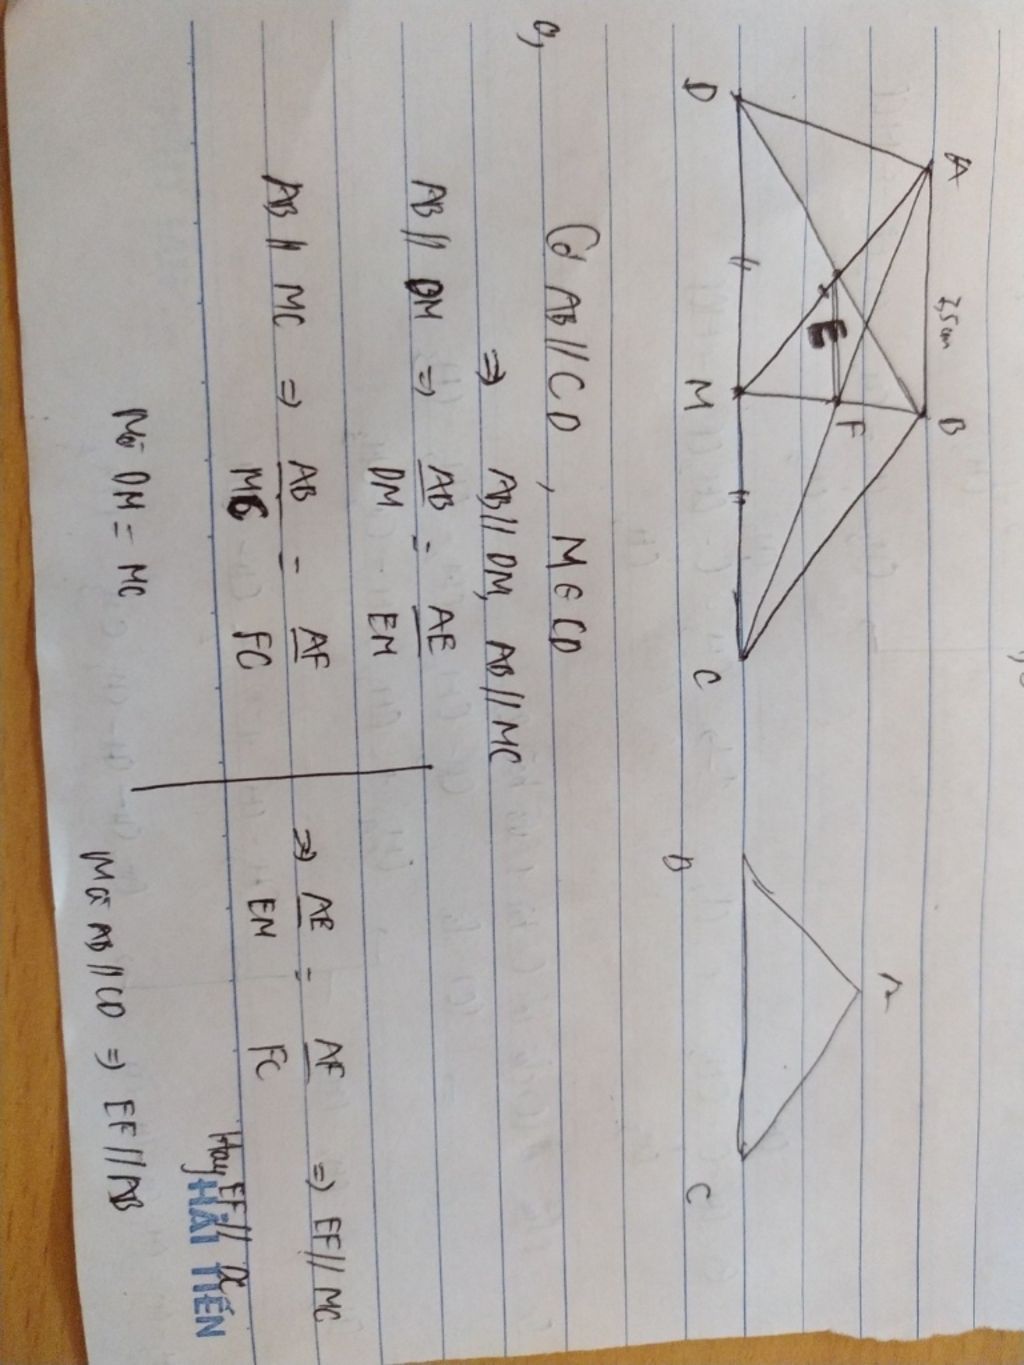 A
B
7,5cm
E
F
D
M
C
A
B
C
a,
Có AB // CD , M ∈ CD
⇒ AB // DM, AB // MC
AB // DM ⇒ AB/DM = AE/EM
AB // MC ⇒ AB/MC = AF/FC
Mà DM = MC
⇒ AE/EM = AF/FC ⇒ EF // MC
Hay EF // DC
Mà AB // CD ⇒ EF // AB
HẢI TIẾN